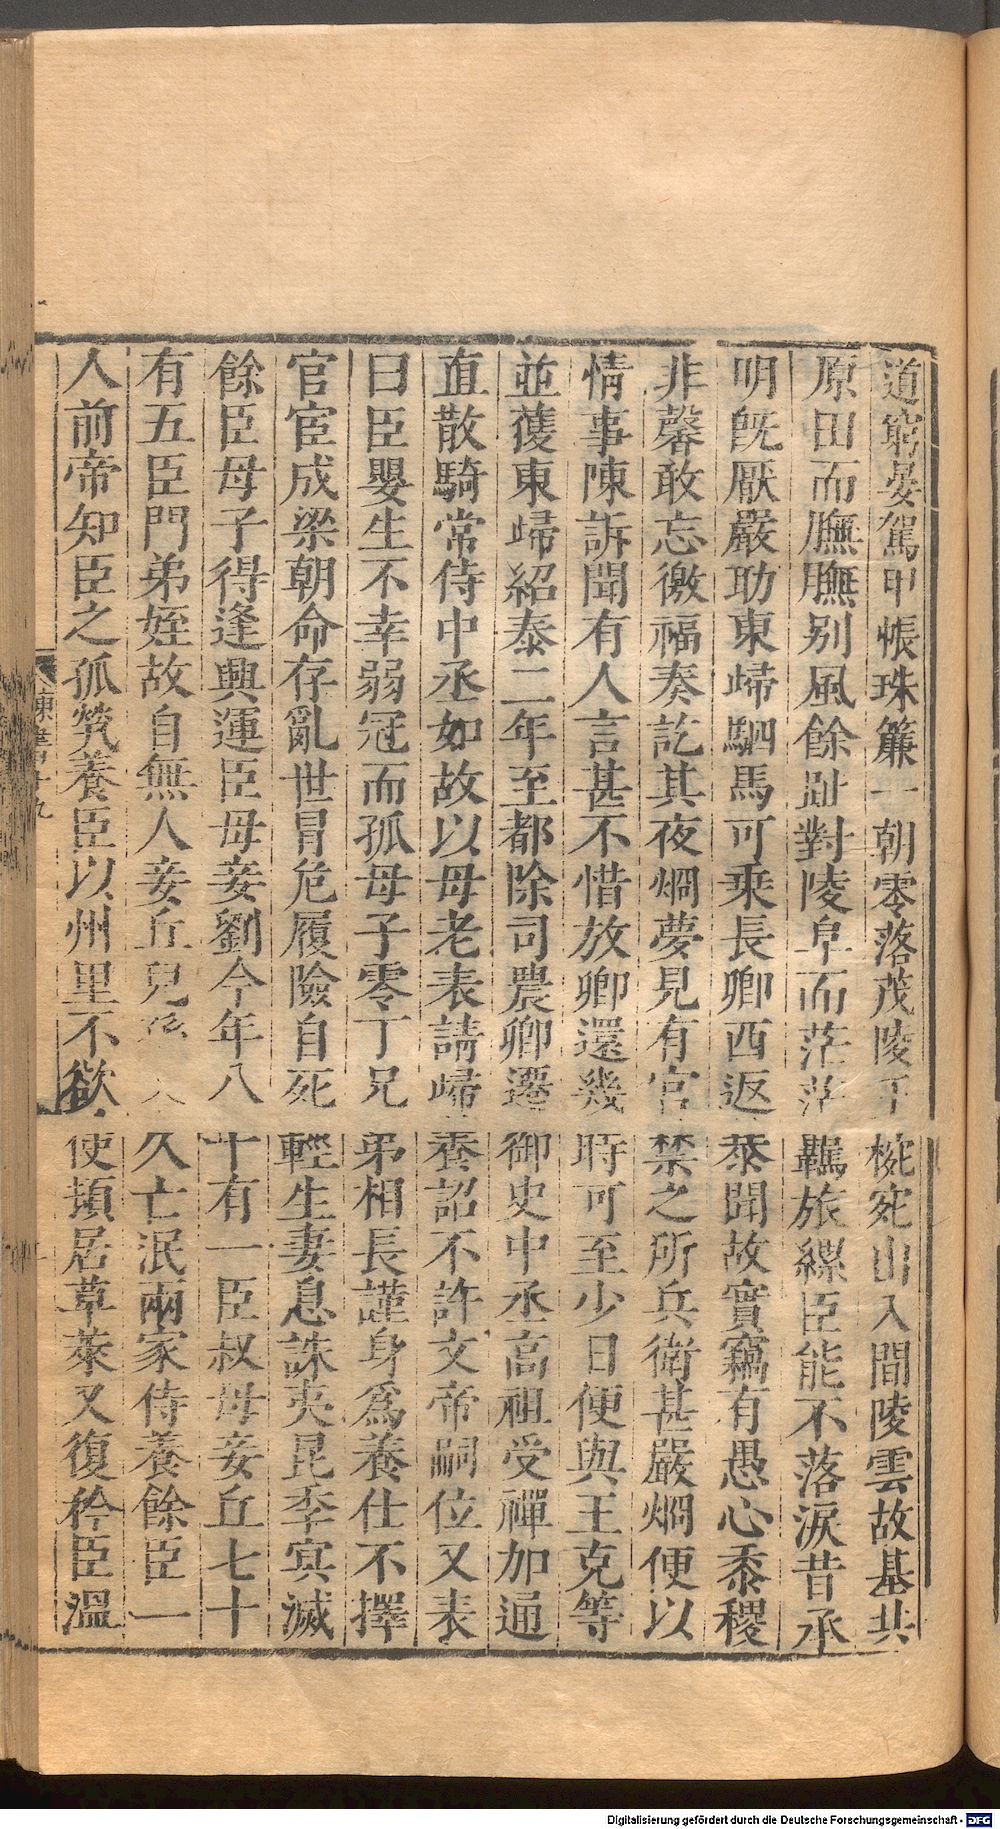 道窮晏駕甲帳珠簾一朝零落茂陵玉椀宛出人間陵雲故基共
原田而膴膴别風餘趾對陵阜而茫茫羈旅縲臣能不落淚昔承
明既厭嚴助東歸駟馬可乘長卿西返恭聞故實竊有愚心黍稷
非馨敢忘徼福奏訖其夜烱夢見有宫禁之所兵衛甚嚴烱便以
情事陳訴聞有人言甚不惜放卿還幾時可至少日便與王克等
並獲東歸紹泰二年至都除司農卿遷御史中丞高祖受禪加通
直散騎常侍中丞如故以母老表請歸養詔不許文帝嗣位又表
曰臣嬰生不幸弱冠而孤母子零丁兄弟相長謹身爲養仕不擇
官宦成梁朝命存亂世冒危履險自死輕生妻息誅夷昆季㝠滅
餘臣母子得逢興運臣母妾劉今年八十有一臣叔母妾丘七十
有五臣門弟姪故自無人妾丘兒久亡泯兩家侍養餘臣一
人前帝知臣之孤煢養臣以州里不欲使頓居草萊又復矜臣溫
陳書十九
Digitalisierung gefördert durch die Deutsche Forschungsgemeinschaft - DFG